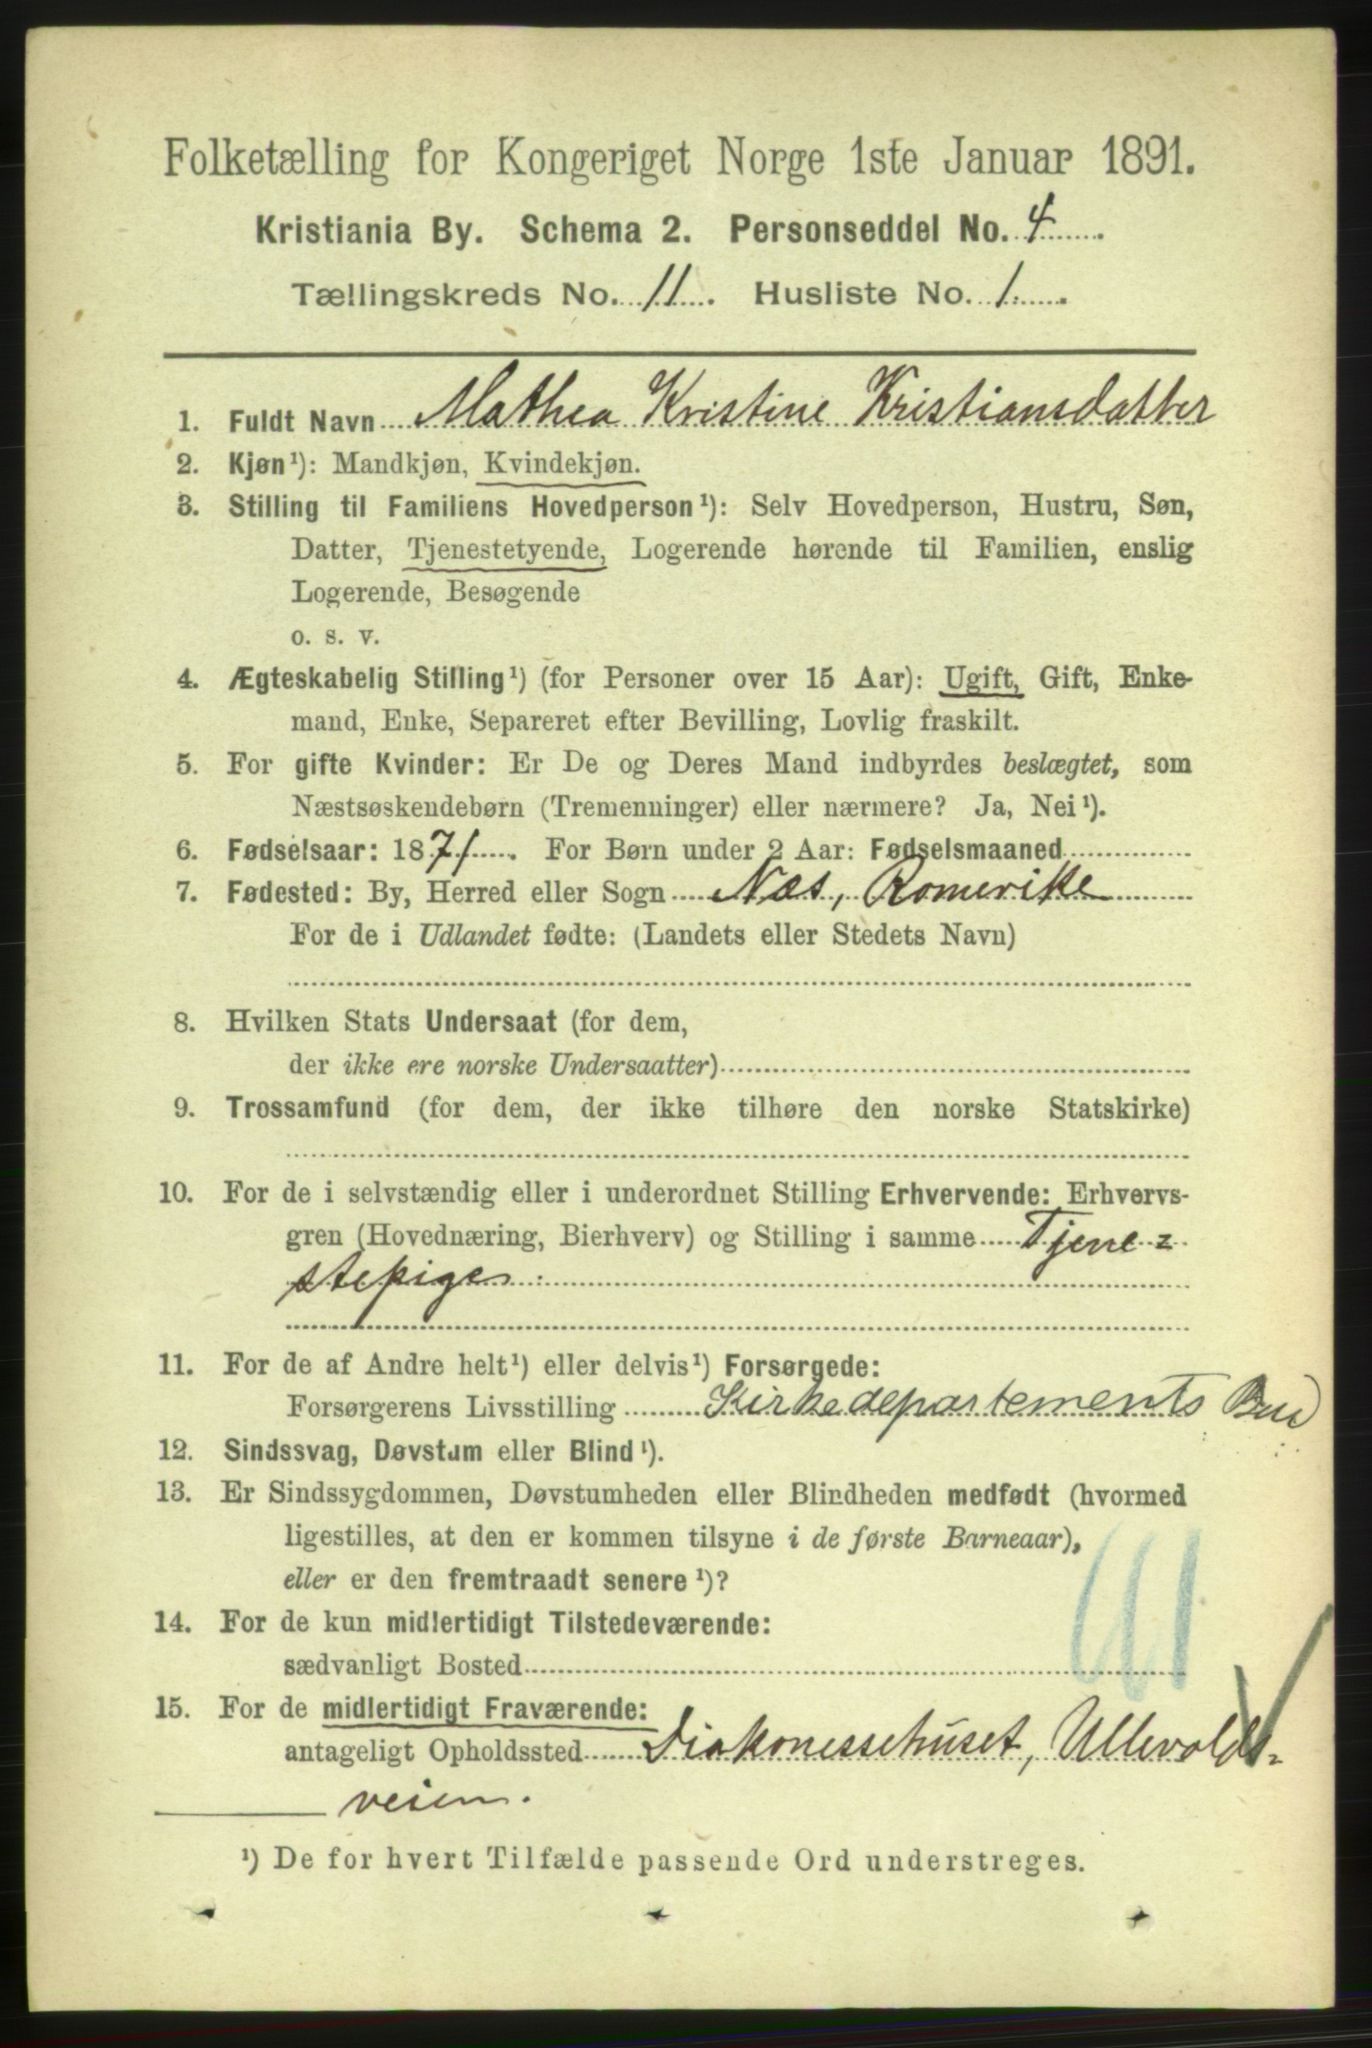 Folketælling for Kongeriget Norge 1ste Januar 1891.
Kristiania By. Schema 2. Personseddel No. 4
Tællingskreds No. 11. Husliste No. 1.
1. Fuldt Navn Mathea Kristine Kristiansdatter
2. Kjøn¹): Mandkjøn, Kvindekjøn.
3. Stilling til Familiens Hovedperson¹): Selv Hovedperson, Hustru, Søn,
Datter, Tjenestetyende, Logerende hørende til Familien, enslig
Logerende, Besøgende
o. s. v.
4. Ægteskabelig Stilling¹) (for Personer over 15 Aar): Ugift, Gift, Enke-
mand, Enke, Separeret efter Bevilling, Lovlig fraskilt.
5. For gifte Kvinder: Er De og Deres Mand indbyrdes beslægtet, som
Næstsøskendebørn (Tremenninger) eller nærmere? Ja, Nei¹).
6. Fødselsaar: 1871. For Børn under 2 Aar: Fødselsmaaned
7. Fødested: By, Herred eller Sogn Næs, Romerike
For de i Udlandet fødte: (Landets eller Stedets Navn)
8. Hvilken Stats Undersaat (for dem,
der ikke ere norske Undersaatter)
9. Trossamfund (for dem, der ikke tilhøre den norske Statskirke)
10. For de i selvstændig eller i underordnet Stilling Erhvervende: Erhvervs-
gren (Hovednæring, Bierhverv) og Stilling i samme Tjene=
stepige.
11. For de af Andre helt¹) eller delvis¹) Forsørgede:
Forsørgerens Livsstilling Kirkedepartements Bud
12. Sindssvag, Døvstum eller Blind¹).
13. Er Sindssygdommen, Døvstumheden eller Blindheden medfødt (hvormed
ligestilles, at den er kommen tilsyne i de første Barneaar),
eller er den fremtraadt senere¹)?
14. For de kun midlertidigt Tilstedeværende:
sædvanligt Bosted
15. For de midlertidigt Fraværende:
antageligt Opholdssted Diakonessehuset, Ullevolds=
veien.
¹) De for hvert Tilfælde passende Ord understreges.